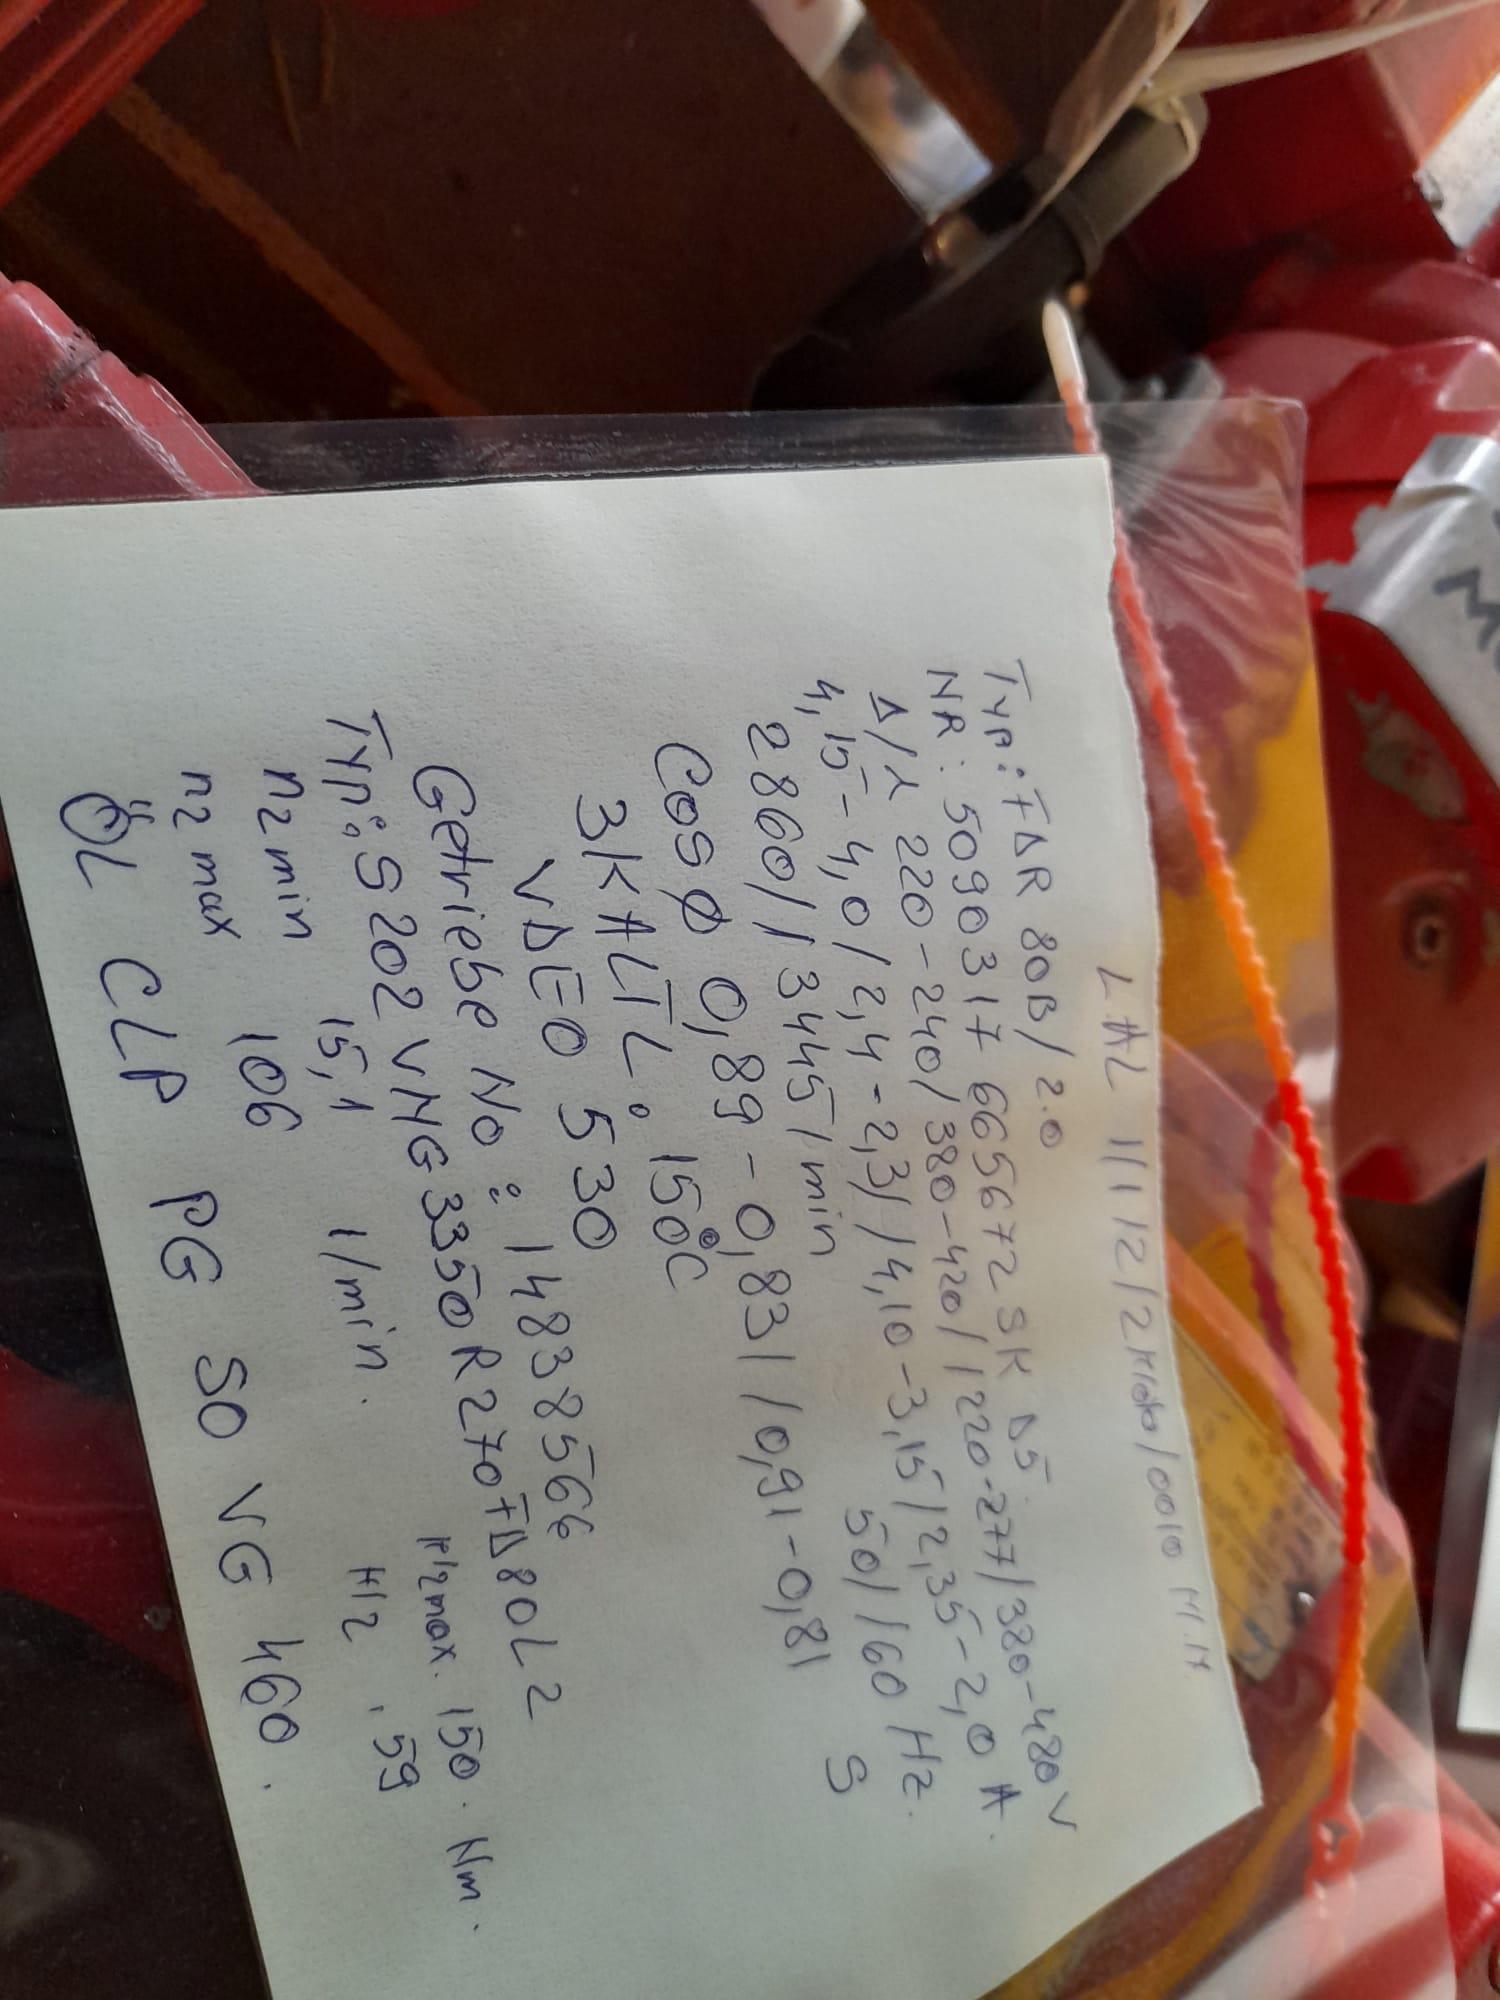 LAL 111 12/2H106/0010 M.H
TYP: FDR 80B/2.0
NR: 5090317 6656672 SK D5
Δ/Y 220-240/380-420//220-277/380-480 V
4,15-4,0/2,4-2,3//4,10-3,15/2,35-2,0 A.
2860//3445/min 50//60 Hz.
Cos φ 0,89-0,83//0,91-0,81 S
3KALTL: 150°C
VDE0 530
Getriebe No: 14838566
TYP: S202VNG3350R270FD80L2
n2 min 15,1 1/min. M2max. 150. Nm.
n2 max 106 M2 .59
ÖL CLP PG SO VG 460.
M